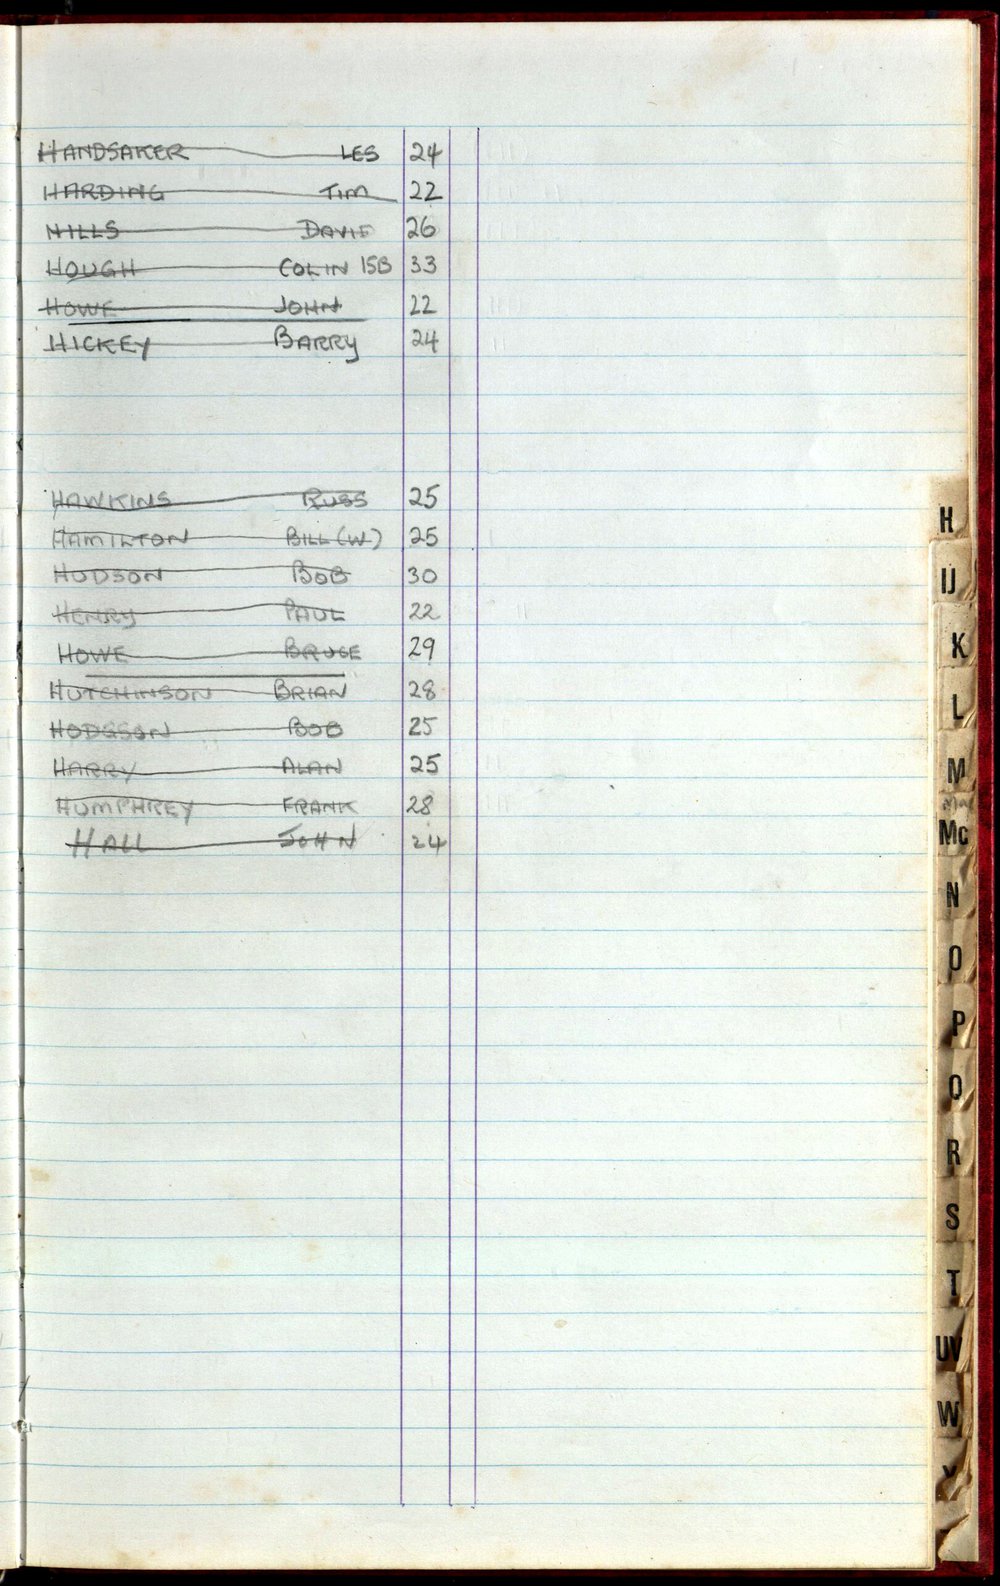 HANDSAKER LES 24
HARDING TIM 22
HILLS DAVID 26
HOUGH COLIN 15B 33
HOWE JOHN 22
HICKEY BARRY 24
HAWKINS RUSS 25
HAMILTON BILL (W) 25
HUDSON BOB 30
HENRY PAUL 22
HOWE BRUCE 29
HUTCHINSON BRIAN 28
HODGSON BOB 25
HARRY ALAN 25
HUMPHREY FRANK 28
HALL JOHN 24
H
IJ
K
L
M
Mac
Mc
N
O
P
Q
R
S
T
UV
W